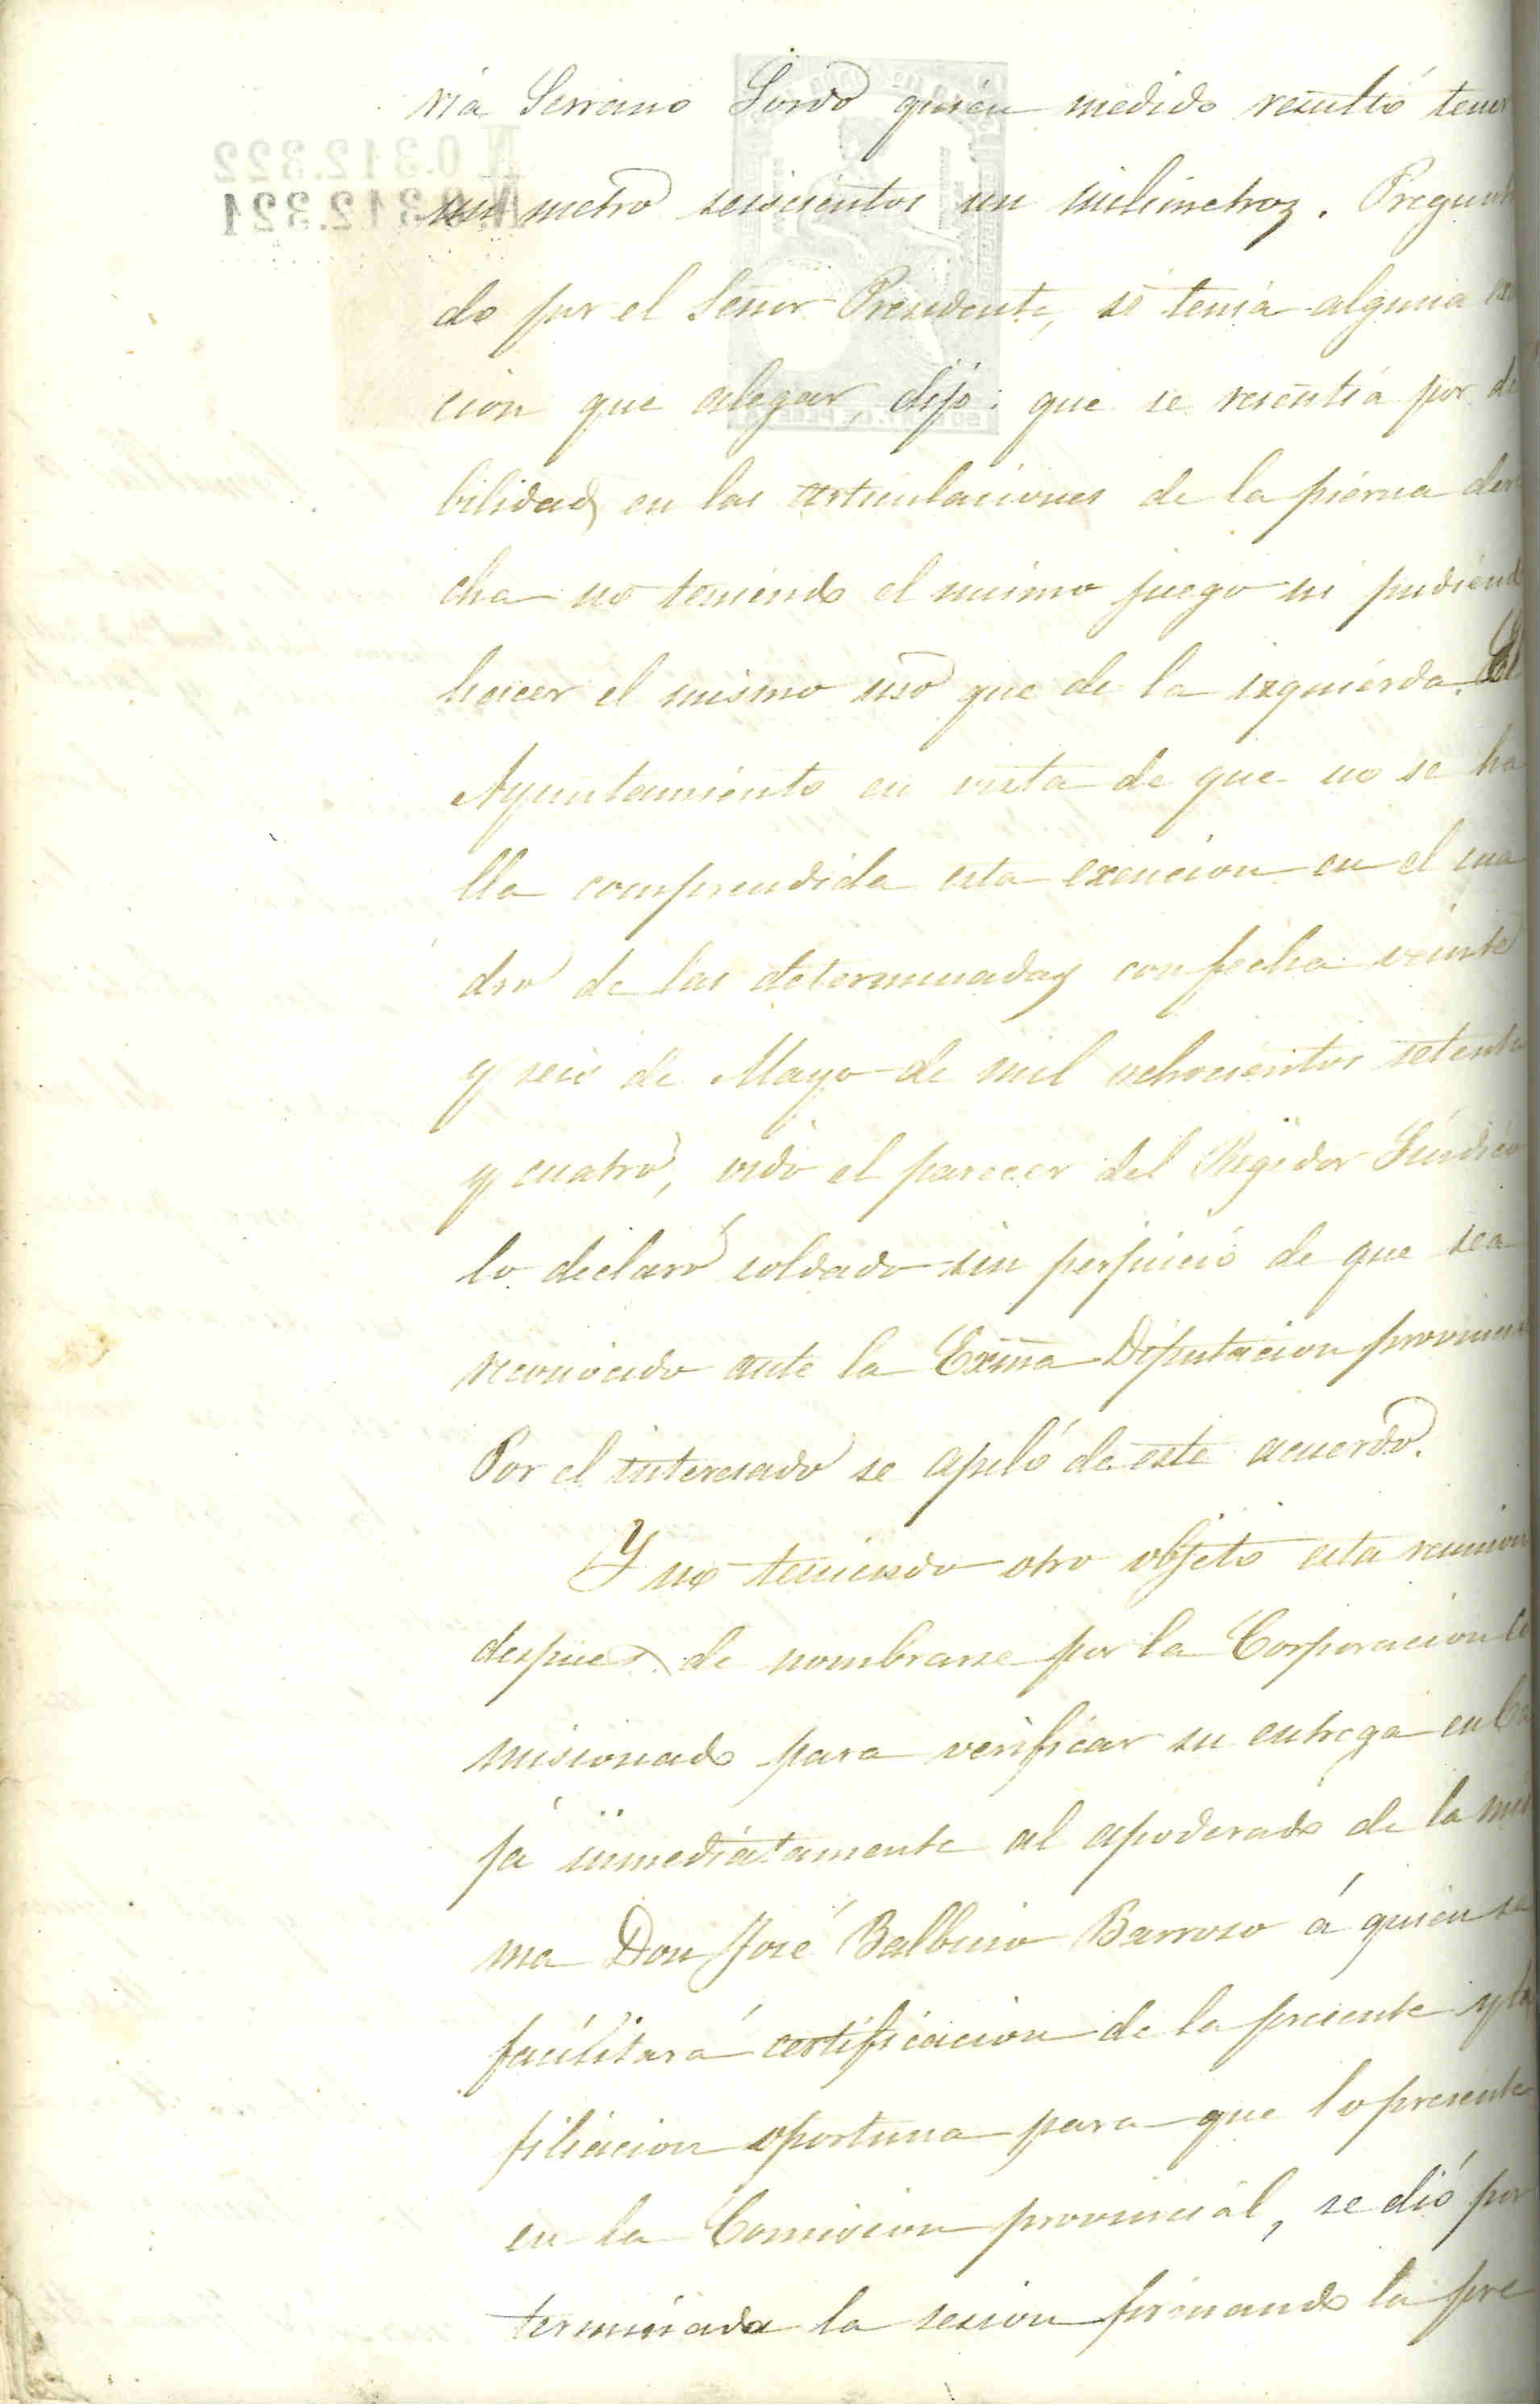 ria Serrano Sordo quién medido resultó tener
un metro seiscientos un milimetros. Pregunta
do por el Señor Presidente, si tenía alguna
cion que alegar, dijo: que se resentía por de
bilidad en las articulaciones de la pierna dere
cha no teniendo el mismo juego ni pudiendo
hacer el mismo uso que de la izquierda. El
Ayuntamiento en vista de que no se ha
lla comprendida esta exencion en el cua
dro de las determinadas con fecha veinte
y seis de Mayo de mil ochocientos setenta
y cuatro, oido el parecer del Regidor Síndico
lo declaró soldado sin perjuicio de que sea
reconocido ante la Exma Diputacion provincial
Por el interesado se apeló de este acuerdo.
Y no teniendo otro objeto esta reunion
despues de nombrarse por la Corporacion Co
misionado para verificar su entrega en Ca
ja inmediatamente al apoderado de la mis
ma Don José Balbino Barroso á quien se
facilitará certificacion de la presente y la
filiacion oportuna para que lo presente
en la Comision provincial, se dió por
terminada la sesion firmando la pre
N.0.312.322
N.0.312.321